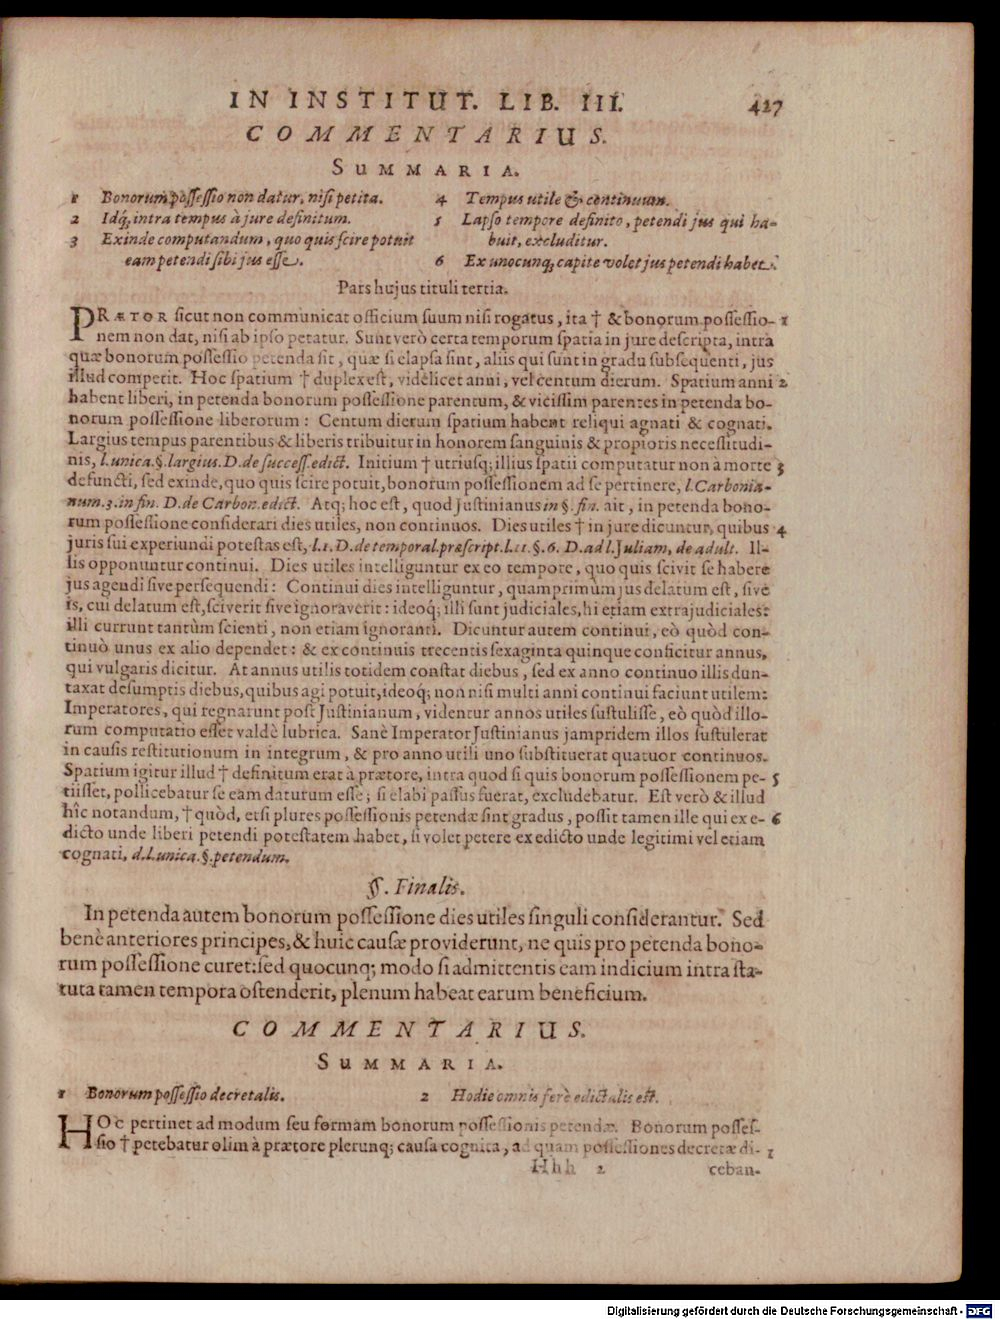 IN INSTITUT. LIB. III. 427
COMMENTARIUS.
SUMMARIA.
1 Bonorum possessio non datur, nisi petita.
2 Idq́, intra tempus à jure definitum.
3 Exinde computandum, quo quis scire potuit
eam petendi sibi jus esse.
4 Tempus utile & continuum.
5 Lapso tempore definito, petendi jus qui ha-
buit, excluditur.
6 Ex unocunq; capite volet jus petendi habet.
Pars hujus tituli tertia.
PRÆTOR sicut non communicat officium suum nisi rogatus, ita † & bonorum possessio- 1
nem non dat, nisi ab ipso petatur. Sunt verò certa temporum spatia in jure descripta, intra
quæ bonorum possessio petenda sit, quæ si elapsa sint, aliis qui sunt in gradu subsequenti, jus
illud competit. Hoc spatium † duplex est, videlicet anni, vel centum dierum. Spatium anni 2
habent liberi, in petenda bonorum possessione parentum, & vicissim parentes in petenda bo-
norum possessione liberorum: Centum dierum spatium habent reliqui agnati & cognati.
Largius tempus parentibus & liberis tribuitur in honorem sanguinis & propioris necessitudi-
nis, l. unica. §. largius. D. de success. edict. Initium † utriusq; illius spatii computatur non à morte 3
defuncti, sed exinde, quo quis scire potuit, bonorum possessionem ad se pertinere, l. Carbonia-
num. 3. in fin. D. de Carbon. edict. Atq; hoc est, quod Justinianus in §. fin. ait, in petenda bono-
rum possessione considerari dies utiles, non continuos. Dies utiles † in jure dicuntur, quibus 4
juris sui experiundi potestas est, l. 1. D. de temporal. præscript. l. 11. §. 6. D. ad l. Juliam, de adult. Il-
lis opponuntur continui. Dies utiles intelliguntur ex eo tempore, quo quis scivit se habere
jus agendi sive persequendi: Continui dies intelliguntur, quamprimùm jus delatum est, sive
is, cui delatum est, sciverit sive ignoraverit: ideoq́; illi sunt judiciales, hi etiam extrajudiciales:
illi currunt tantùm scienti, non etiam ignoranti. Dicuntur autem continui, eò quòd con-
tinuò unus ex alio dependet: & ex continuis trecentis sexaginta quinque conficitur annus,
qui vulgaris dicitur. At annus utilis totidem constat diebus, sed ex anno continuo illis dun-
taxat desumptis diebus, quibus agi potuit, ideoq́; non nisi multi anni continui faciunt utilem:
Imperatores, qui regnarunt post Justinianum, videntur annos utiles sustulisse, eò quòd illo-
rum computatio esset valdè lubrica. Sanè Imperator Justinianus jampridem illos sustulerat
in causis restitutionum in integrum, & pro anno utili uno substituerat quatuor continuos.
Spatium igitur illud † definitum erat à prætore, intra quod si quis bonorum possessionem pe- 5
tiisset, pollicebatur se eam daturum esse; si elabi passus fuerat, excludebatur. Est verò & illud
hîc notandum, † quòd, etsi plures possessionis petendæ sint gradus, possit tamen ille qui ex e- 6
dicto unde liberi petendi potestatem habet, si volet petere ex edicto unde legitimi vel etiam
cognati, d. l. unica. §. petendum.
§. Finalis.
In petenda autem bonorum possessione dies utiles singuli considerantur. Sed
benè anteriores principes, & huic causæ providerunt, ne quis pro petenda bono-
rum possessione curet: sed quocunq; modo si admittentis eam indicium intra sta-
tuta tamen tempora ostenderit, plenum habeat earum beneficium.
COMMENTARIUS.
SUMMARIA.
1 Bonorum possessio decretalis. 2 Hodie omnis ferè edictalis est.
HOc pertinet ad modum seu formam bonorum possessionis petendæ. Bonorum posses-
sio † petebatur olim à prætore plerunq; causa cognita, ad quam possessiones decretæ di- 1
Hhh 2 ceban-
Digitalisierung gefördert durch die Deutsche Forschungsgemeinschaft - DFG